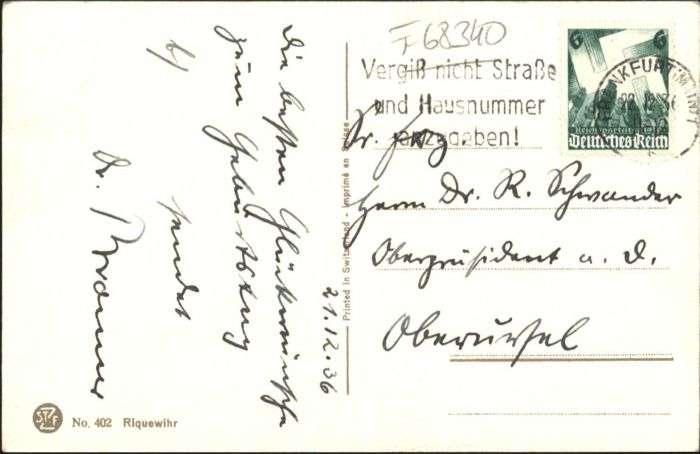 Die besten Glückwünsche
zum Geburtstag
sendet
Dr.
21.12.36
No. 402 Riquewihr
Printed in Switzerland - Imprimé en Suisse
F 68340
Vergiß nicht Straße
und Hausnummer
anzugeben!
6 6
Reichsparteitag 1936
Deutsches Reich
Herrn Dr. R. Schwander
Oberpräsident a. D.
Oberursel